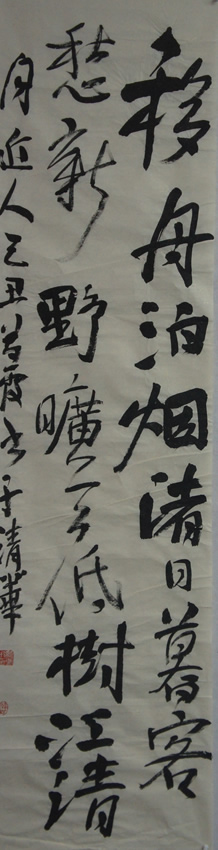 移舟泊烟渚日暮客
愁新野曠天低樹江清
月近人己丑书于清華